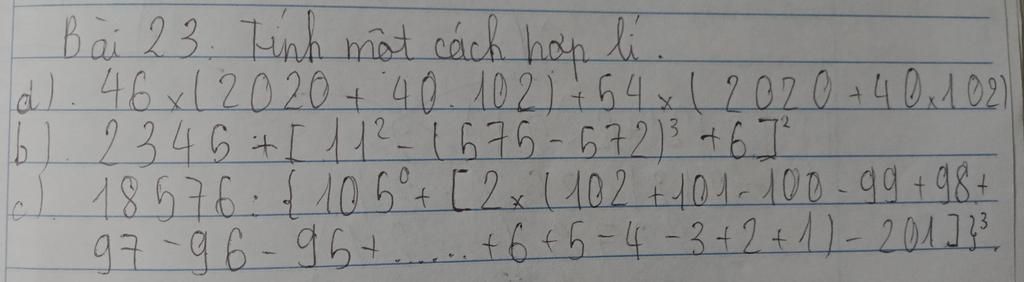 Bài 23. Tính một cách hợp lí.
a). 46 x ( 2020 + 40 . 102 ) + 54 x ( 2020 + 40 x 102)
b). 2345 + [ 11² - ( 575 - 572 )³ + 6 ]²
c). 18576 : { 105⁰ + [ 2 x ( 102 + 101 - 100 - 99 + 98 +
97 - 96 - 95 + ...... + 6 + 5 - 4 - 3 + 2 + 1 ) - 201 ] }³.